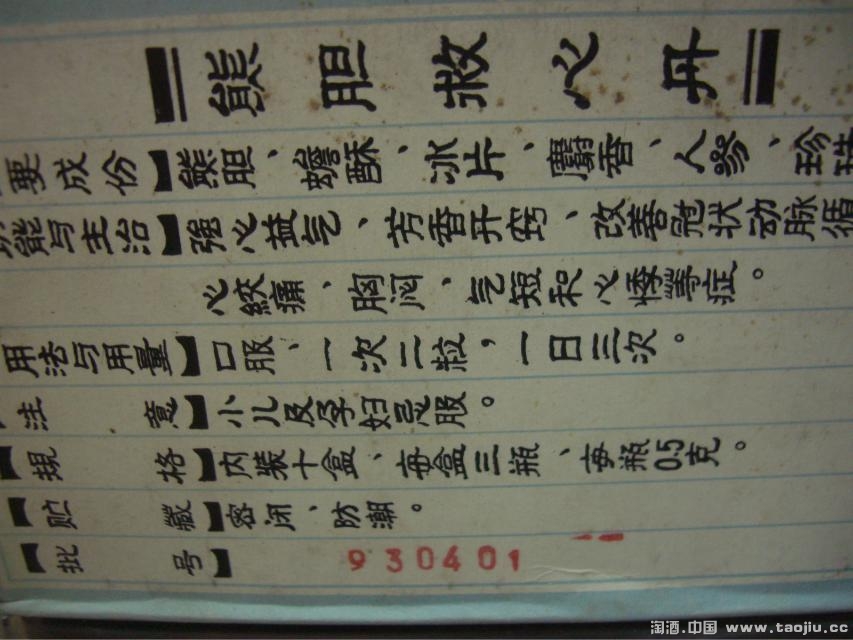 熊胆救心丹
要成份】熊胆、蟾酥、冰片、麝香、人参、珍珠
功能与主治】强心益气、芳香开窍、改善冠状动脉循
心绞痛、胸闷、气短和心悸等症。
用法与用量】口服、一次二粒,一日三次。
注意】小儿及孕妇忌服。
【规格】内装十盒、每盒三瓶、每瓶0.5克。
【贮藏】密闭、防潮。
【批号】930401
淘酒.中国 www.taojiu.cc